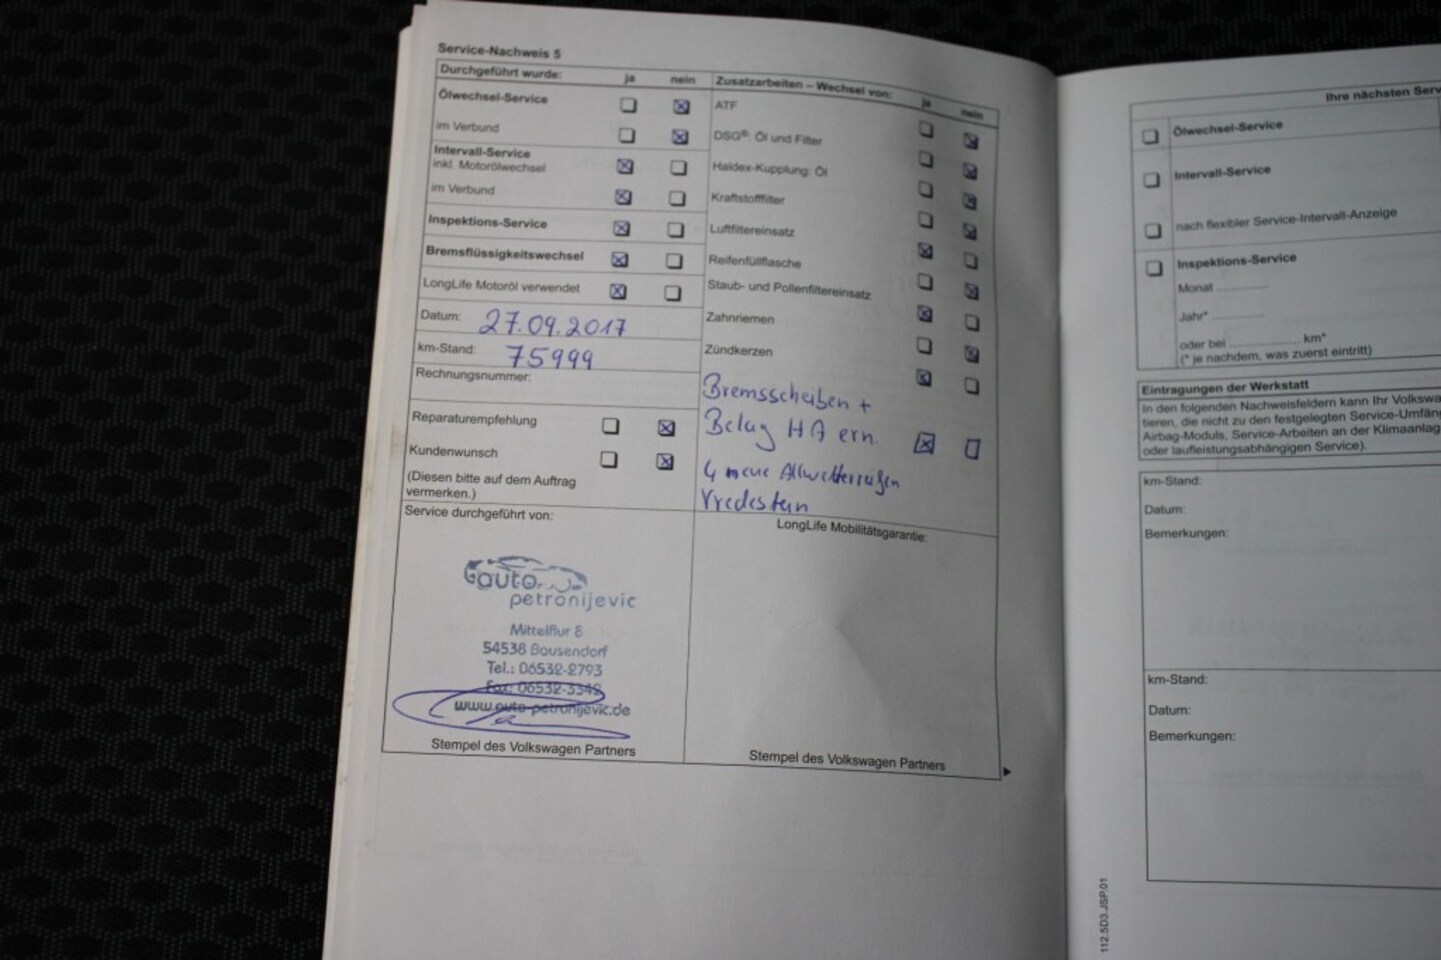 Service-Nachweis 5
Durchgeführt wurde: ja nein
Ölwechsel-Service
im Verbund
Intervall-Service
inkl. Motorölwechsel
im Verbund
Inspektions-Service
Bremsflüssigkeitswechsel
LongLife Motoröl verwendet
Datum: 27.09.2017
km-Stand: 75999
Rechnungsnummer:
Reparaturempfehlung
Kundenwunsch
(Diesen bitte auf dem Auftrag
vermerken.)
Service durchgeführt von:
auto
petronijevic
Mittelflur 8
54538 Bausendorf
Tel.: 06532-2793
Fax: 06532-3342
www.auto-petronijevic.de
Stempel des Volkswagen Partners
Zusatzarbeiten – Wechsel von: ja nein
ATF
DSG®: Öl und Filter
Haldex-Kupplung: Öl
Kraftstofffilter
Luftfiltereinsatz
Reifenfüllflasche
Staub- und Pollenfiltereinsatz
Zahnriemen
Zündkerzen
Bremsscheiben +
Belag HA ern.
4 neue Allwetterreifen
Vredestein
LongLife Mobilitätsgarantie:
Stempel des Volkswagen Partners
Ihre nächsten Serv
Ölwechsel-Service
Intervall-Service
nach flexibler Service-Intervall-Anzeige
Inspektions-Service
Monat ..............
Jahr* ..............
oder bei ................... km*
(* je nachdem, was zuerst eintritt)
Eintragungen der Werkstatt
In den folgenden Nachweisfeldern kann Ihr Volkswa
tieren, die nicht zu den festgelegten Service-Umfän
Airbag-Moduls, Service-Arbeiten an der Klimaanlag
oder laufleistungsabhängigen Service).
km-Stand:
Datum:
Bemerkungen:
km-Stand:
Datum:
Bemerkungen:
112.5D3.JSP.01